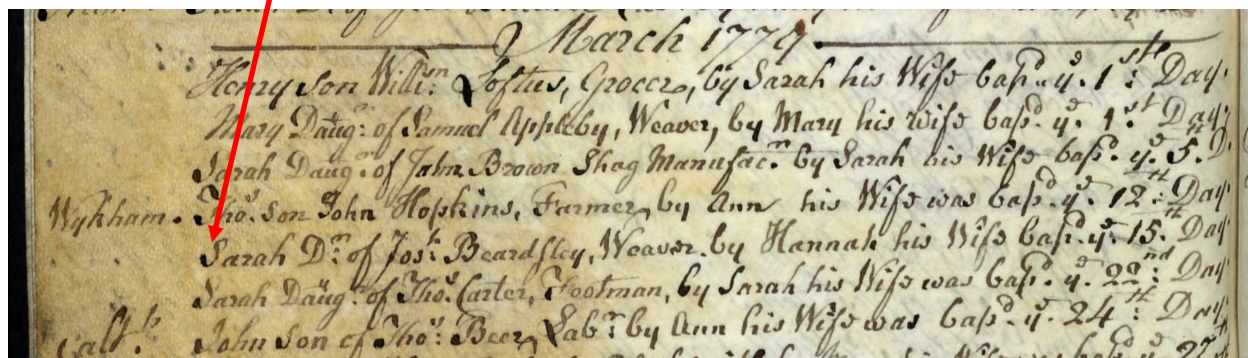 March 1779.
Henry son Willm. Loftus, Grocer, by Sarah his Wife bapd. ye. 1st Day.
Mary Daugr. of Samuel Appleby, Weaver, by Mary his wife bapd. ye. 1st Day.
Sarah Daugr. of John Brown Shag Manufacr. by Sarah his Wife bapd. ye. 5th D.
Wykham. Thos. son John Hopkins, Farmer, by Ann his Wife was bapd. ye. 12th Day
Sarah Dr. of Josh. Beardsley, Weaver. by Hannah his Wife bapd. ye. 15th Day
Sarah Daugr. of Thos. Carter, Footman, by Sarah his Wife was bapd. ye. 22nd Day
Calth. John son of Thos. Beer, Labr. by Ann his Wife was bapd. ye. 24th Day